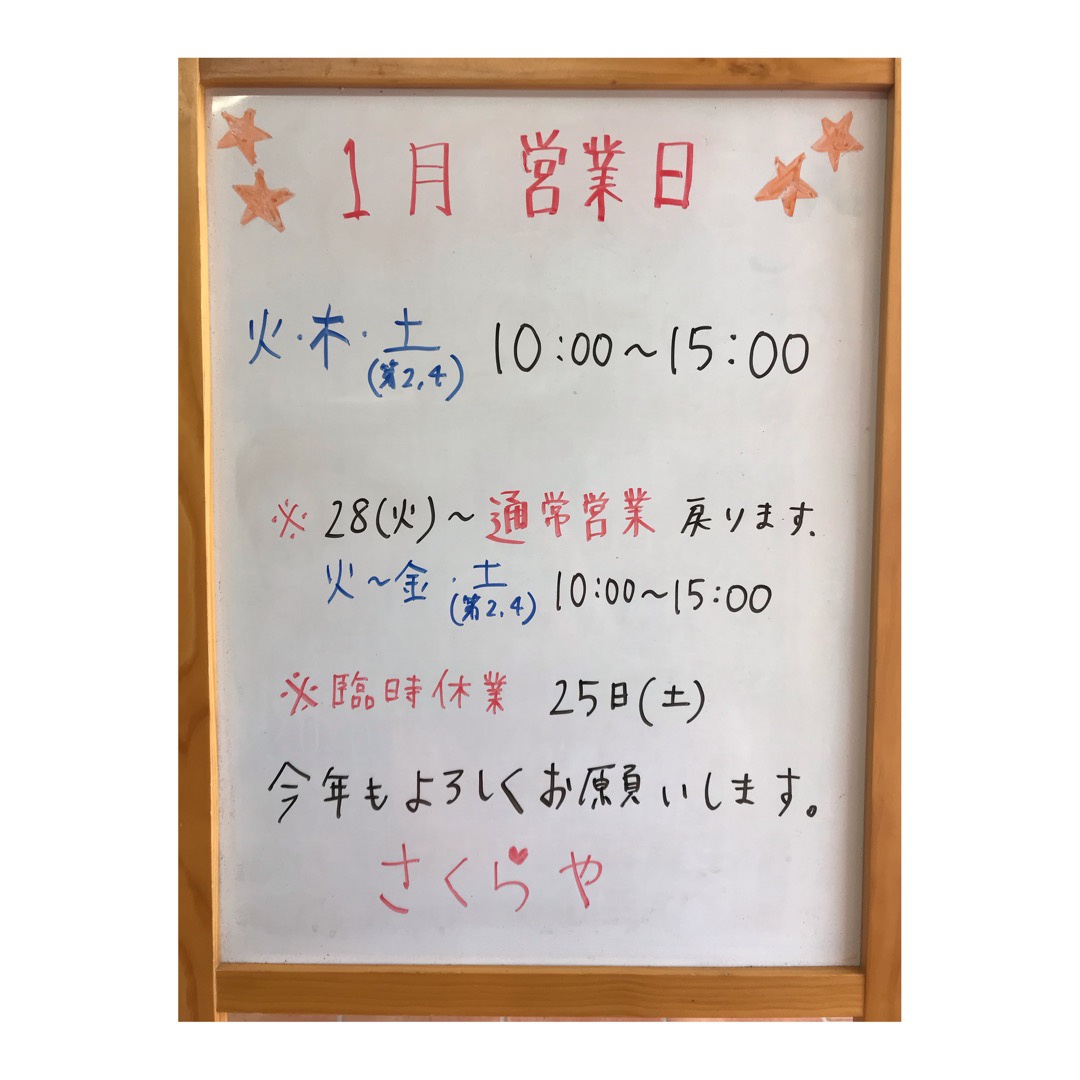 1月 営業日
火・木・土 10:00〜15:00
(第2,4)
※ 28(火)〜通常営業 戻ります.
火〜金・土 10:00〜15:00
(第2,4)
※臨時休業 25日(土)
今年もよろしくお願いします。
さくらや